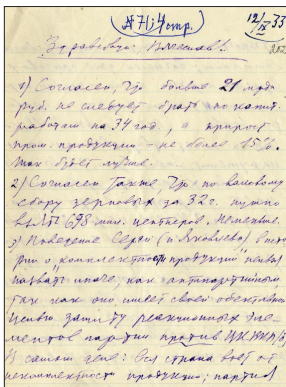 (#71, 4 стр.)
12/IX 33
Здравствуй, Вячеслав!
1) Согласен, что больше 21 млрд
руб. не следует брать по капит.
работам на 34 год, а прирост
пром. продукции – не более 15%.
Так будет лучше.
2) Согласен также, что по валовому
сбору зерновых за 32 г. нужно
взять 698 мил. центнеров. Не меньше.
3) Поведение Сергей (и Яковлева) в исто
рии о "комплектности продукции" нельзя
назвать иначе, как антипартийным,
так как оно имеет своей объективной
целью защиту реакционных эле-
ментов партии против ЦК ВКП(б).
В самом деле: вся страна воет от
некомплектности продукции; партия